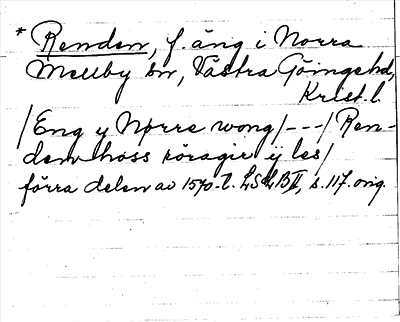 * Renden, f. äng i Norra
Mellby sn, Västra Göingehd,
Krist. l.
/Eng y Nørre wong/---/Ren-
den hoss röragir ij les/
förra delen av 1570-t. LSLB II, s. 117. orig.